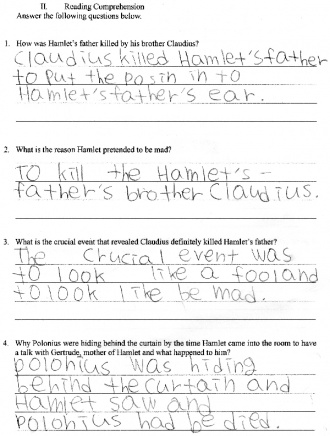 II. Reading Comprehension
Answer the following questions below.
1. How was Hamlet's father killed by his brother Claudius?
Claudius killed Hamlet's father
to put the posin in to
Hamlet's father's ear.
2. What is the reason Hamlet pretended to be mad?
TO kill the Hamlet's -
father's brother Claudius.
3. What is the crucial event that revealed Claudius definitely killed Hamlet's father?
The Crucial event was
to look like a fool and
to look like be mad.
4. Why Polonius were hiding behind the curtain by the time Hamlet came into the room to have
a talk with Gertrude, mother of Hamlet and what happened to him?
polonius was hiding
behind the curtain and
Hamlet saw and
polonius had be died.